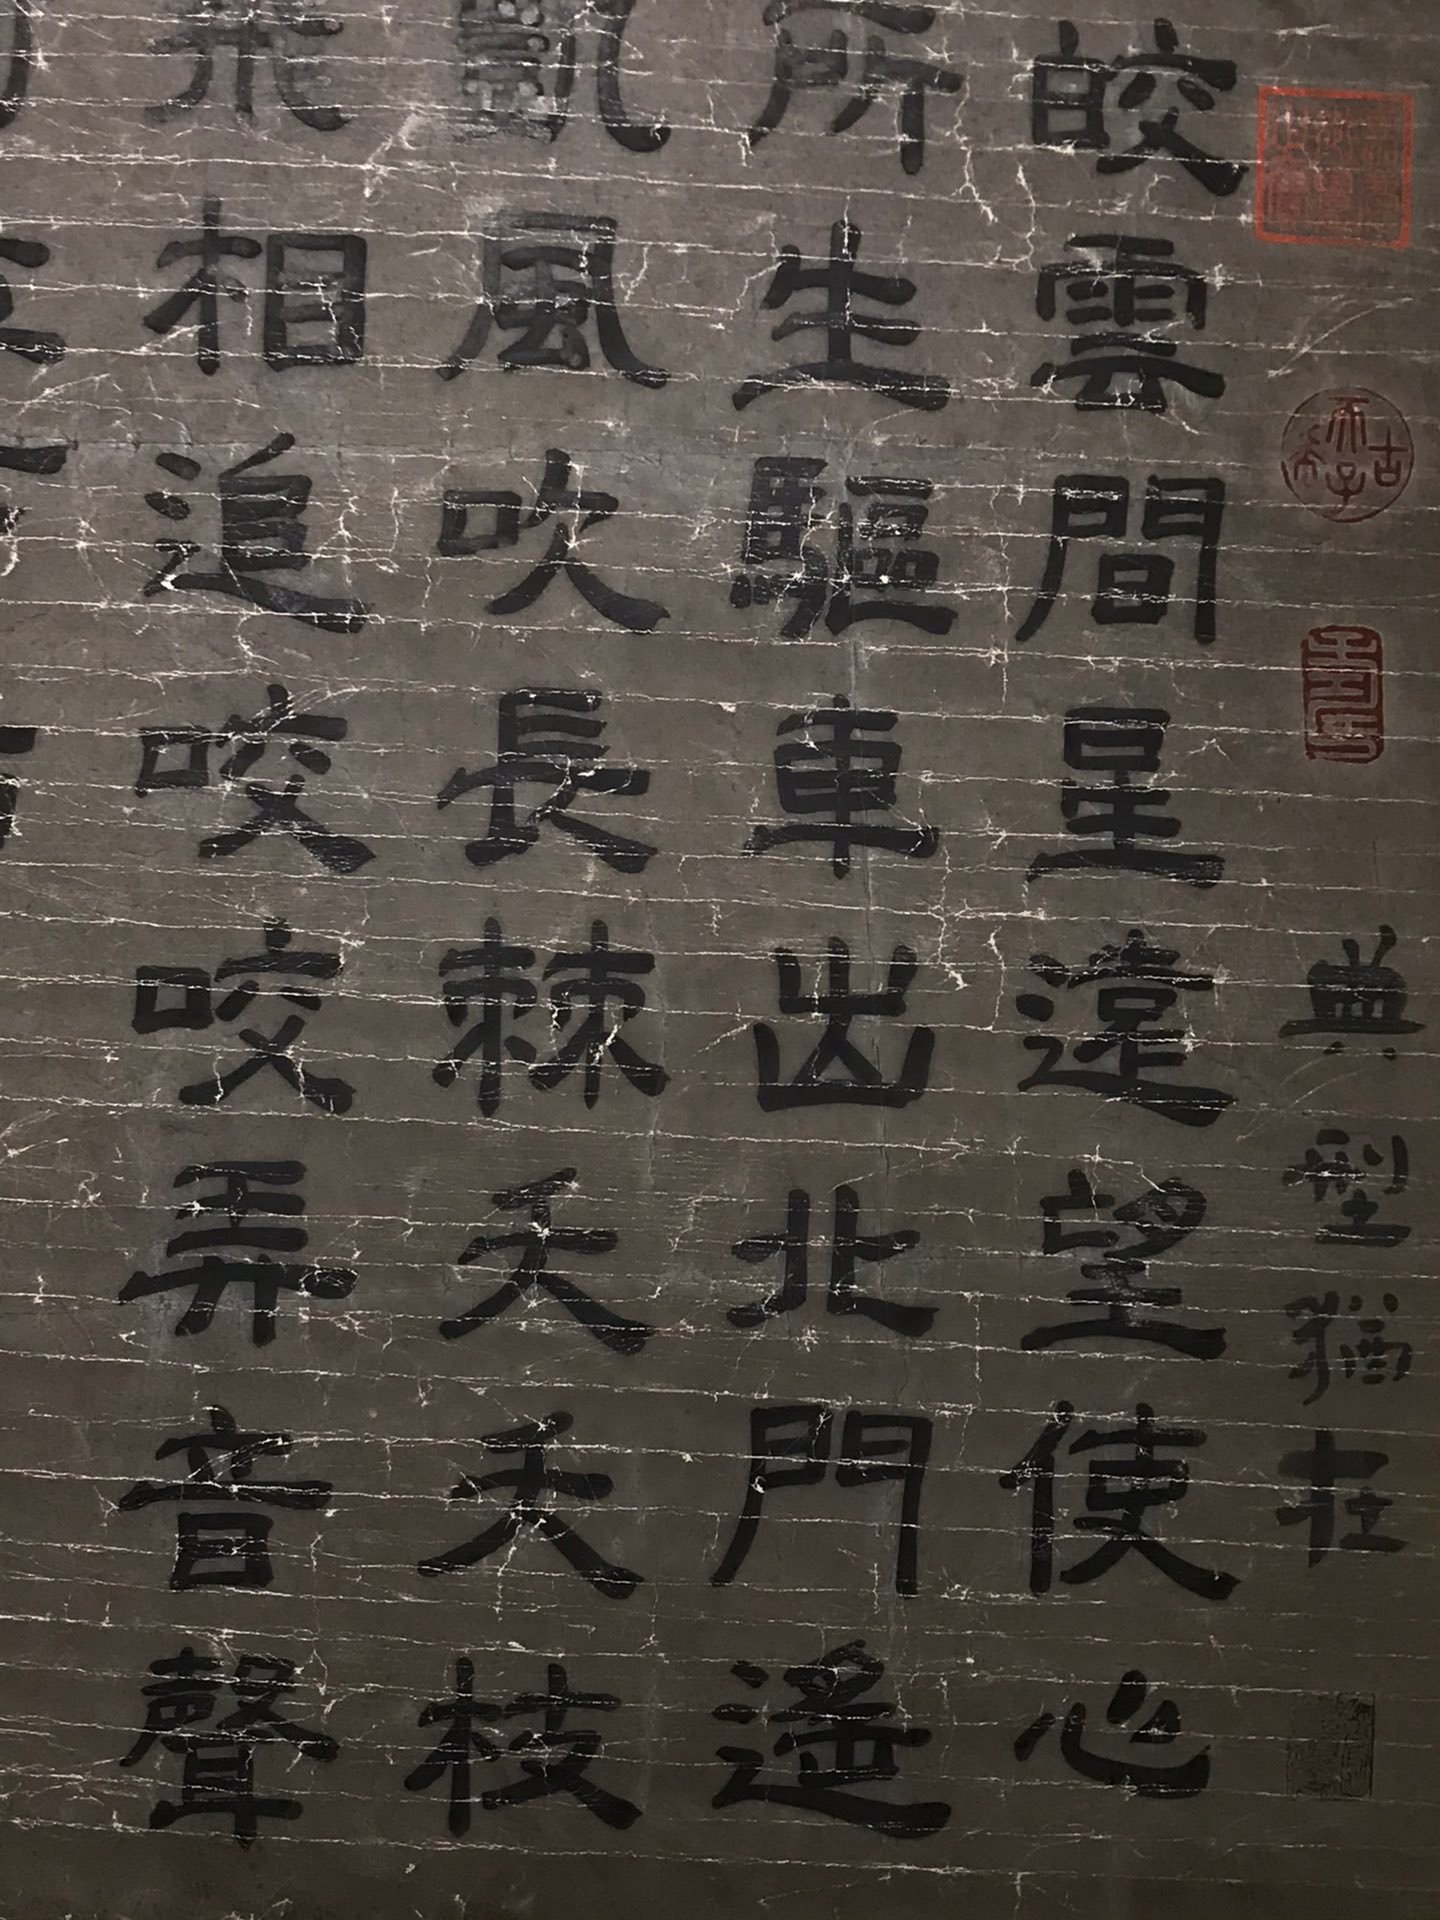 典型猶在
皎雲間星遠望使心
所生驅車出北門遙
凱風吹長棘夭夭枝
飛相追咬咬弄音聲
古希天子